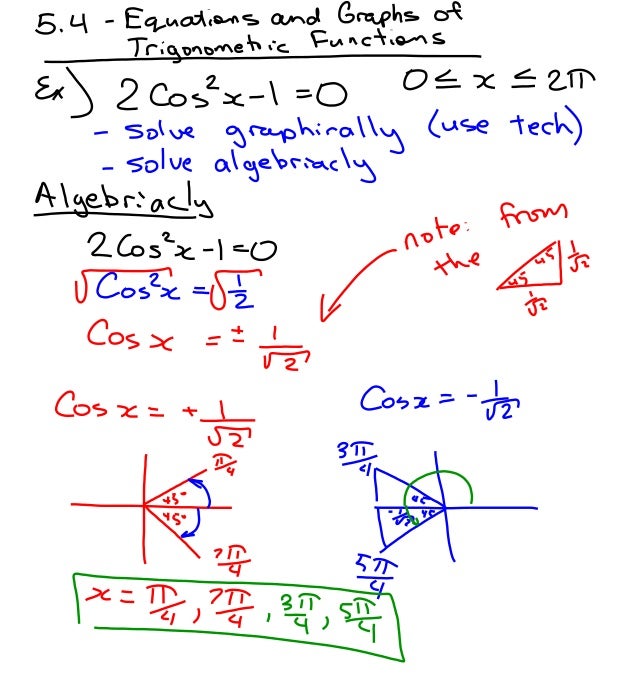 5.4 - Equations and Graphs of
Trigonometric Functions
Ex) 2 Cos²x - 1 = 0 0 ≤ x ≤ 2π
- solve graphirally (use tech)
- solve algebriacly
Algebriacly
2 Cos²x - 1 = 0
√Cos²x = √1/2
Cos x = ± 1/√2
note: from
the
45 45 1/√2
1/√2
Cos x = + 1/√2
Cos x = - 1/√2
π/4
45°
45°
7π/4
3π/4
45
-1/√2 45
5π/4
x = π/4, 7π/4, 3π/4, 5π/4